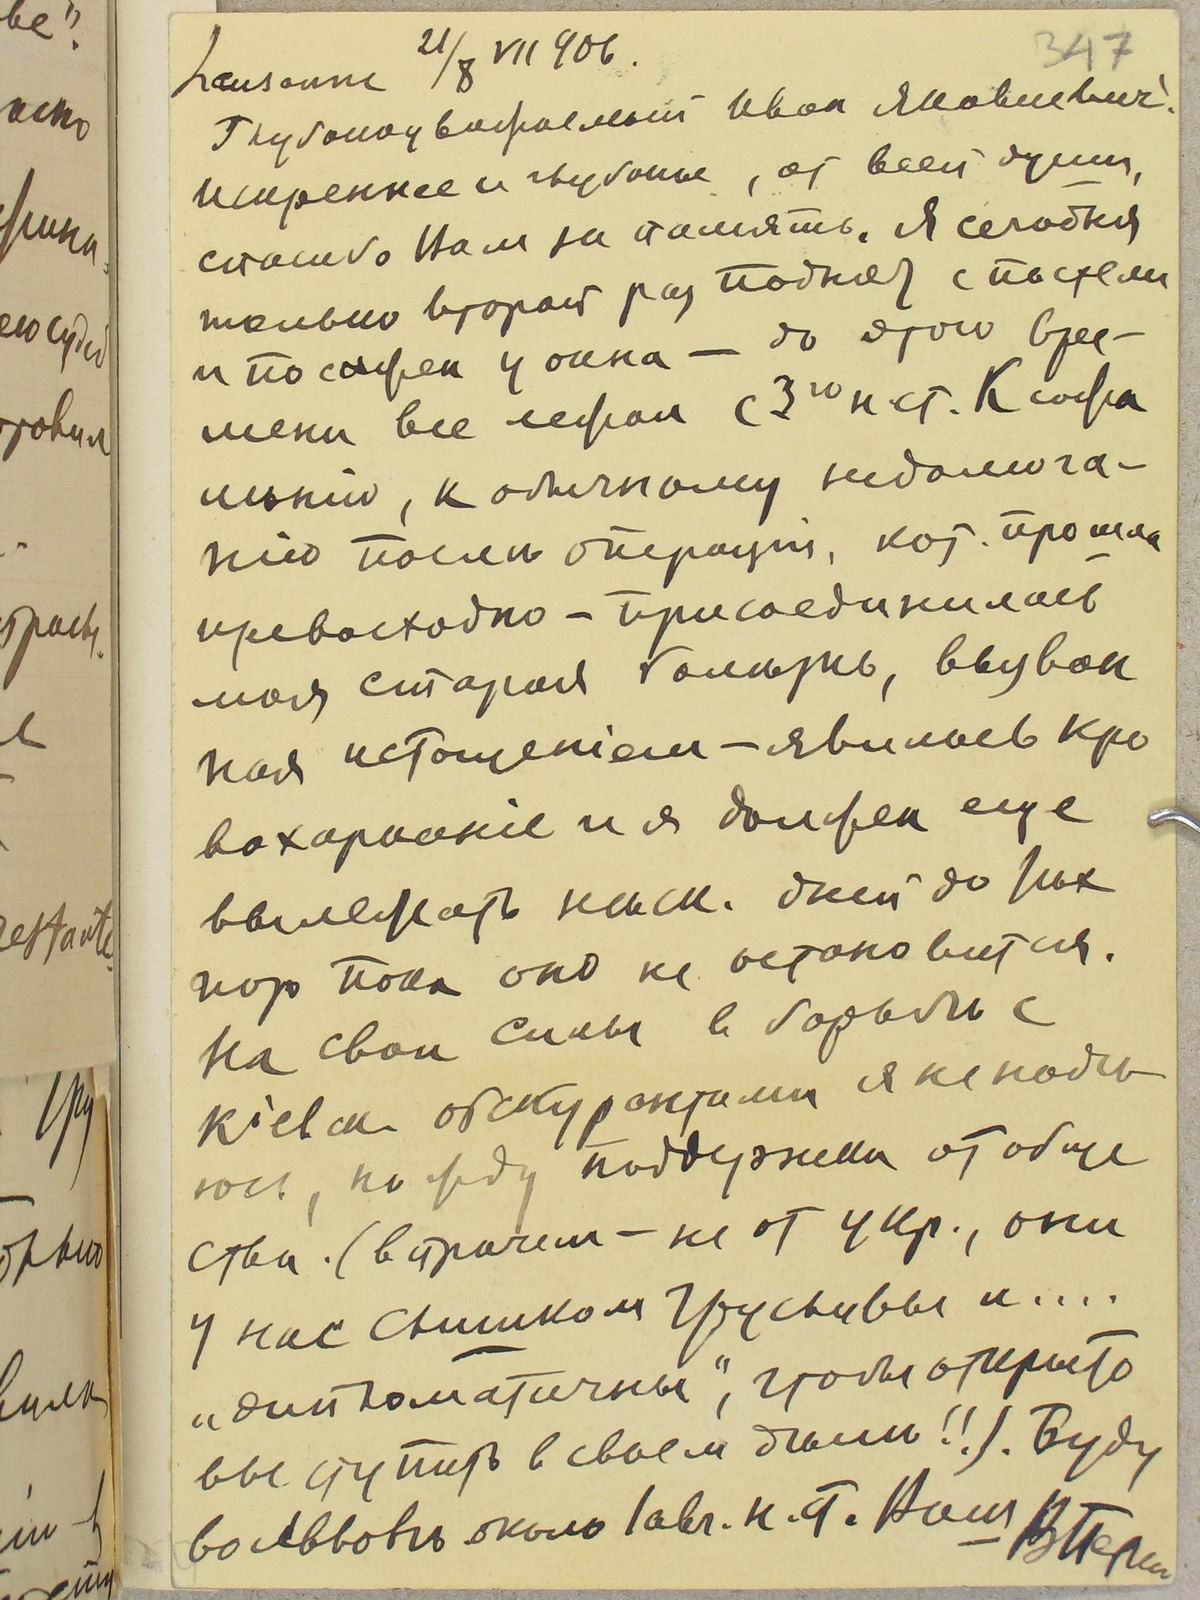 347
Lausanne 21/8 VII 906.
Глубокоуважаемый Иван Яковлевич!
Искреннее и глубокое, от всей души,
спасибо Вам за память. Я сегодня
только второй раз поднял с постели
и посажен у окна — до этого вре-
мени все лежал с 3го н. ст. К сожа
лѣнію, к обычному недомога-
нію послѣ операціи, кот. прошла
превосходно — присоединилась
моя старая болѣзнь, вызван
ная истощеніем — явилось кро
вохарканіе и я должен еще
вылежать нѣск. дней до тѣх
пор пока оно не остановится.
На свои силы в борьбѣ с
кіевск. обскурантами я не надѣ-
юсь, но жду поддержки от обще
ства. (впрочем — не от укр., они
у нас слишком трусливы и....
„дипломатичны", чтобы открыто
выступить в своем дѣлѣ!!). Буду
во Львовѣ около 1 авг. н. ст. Ваш ВПерет